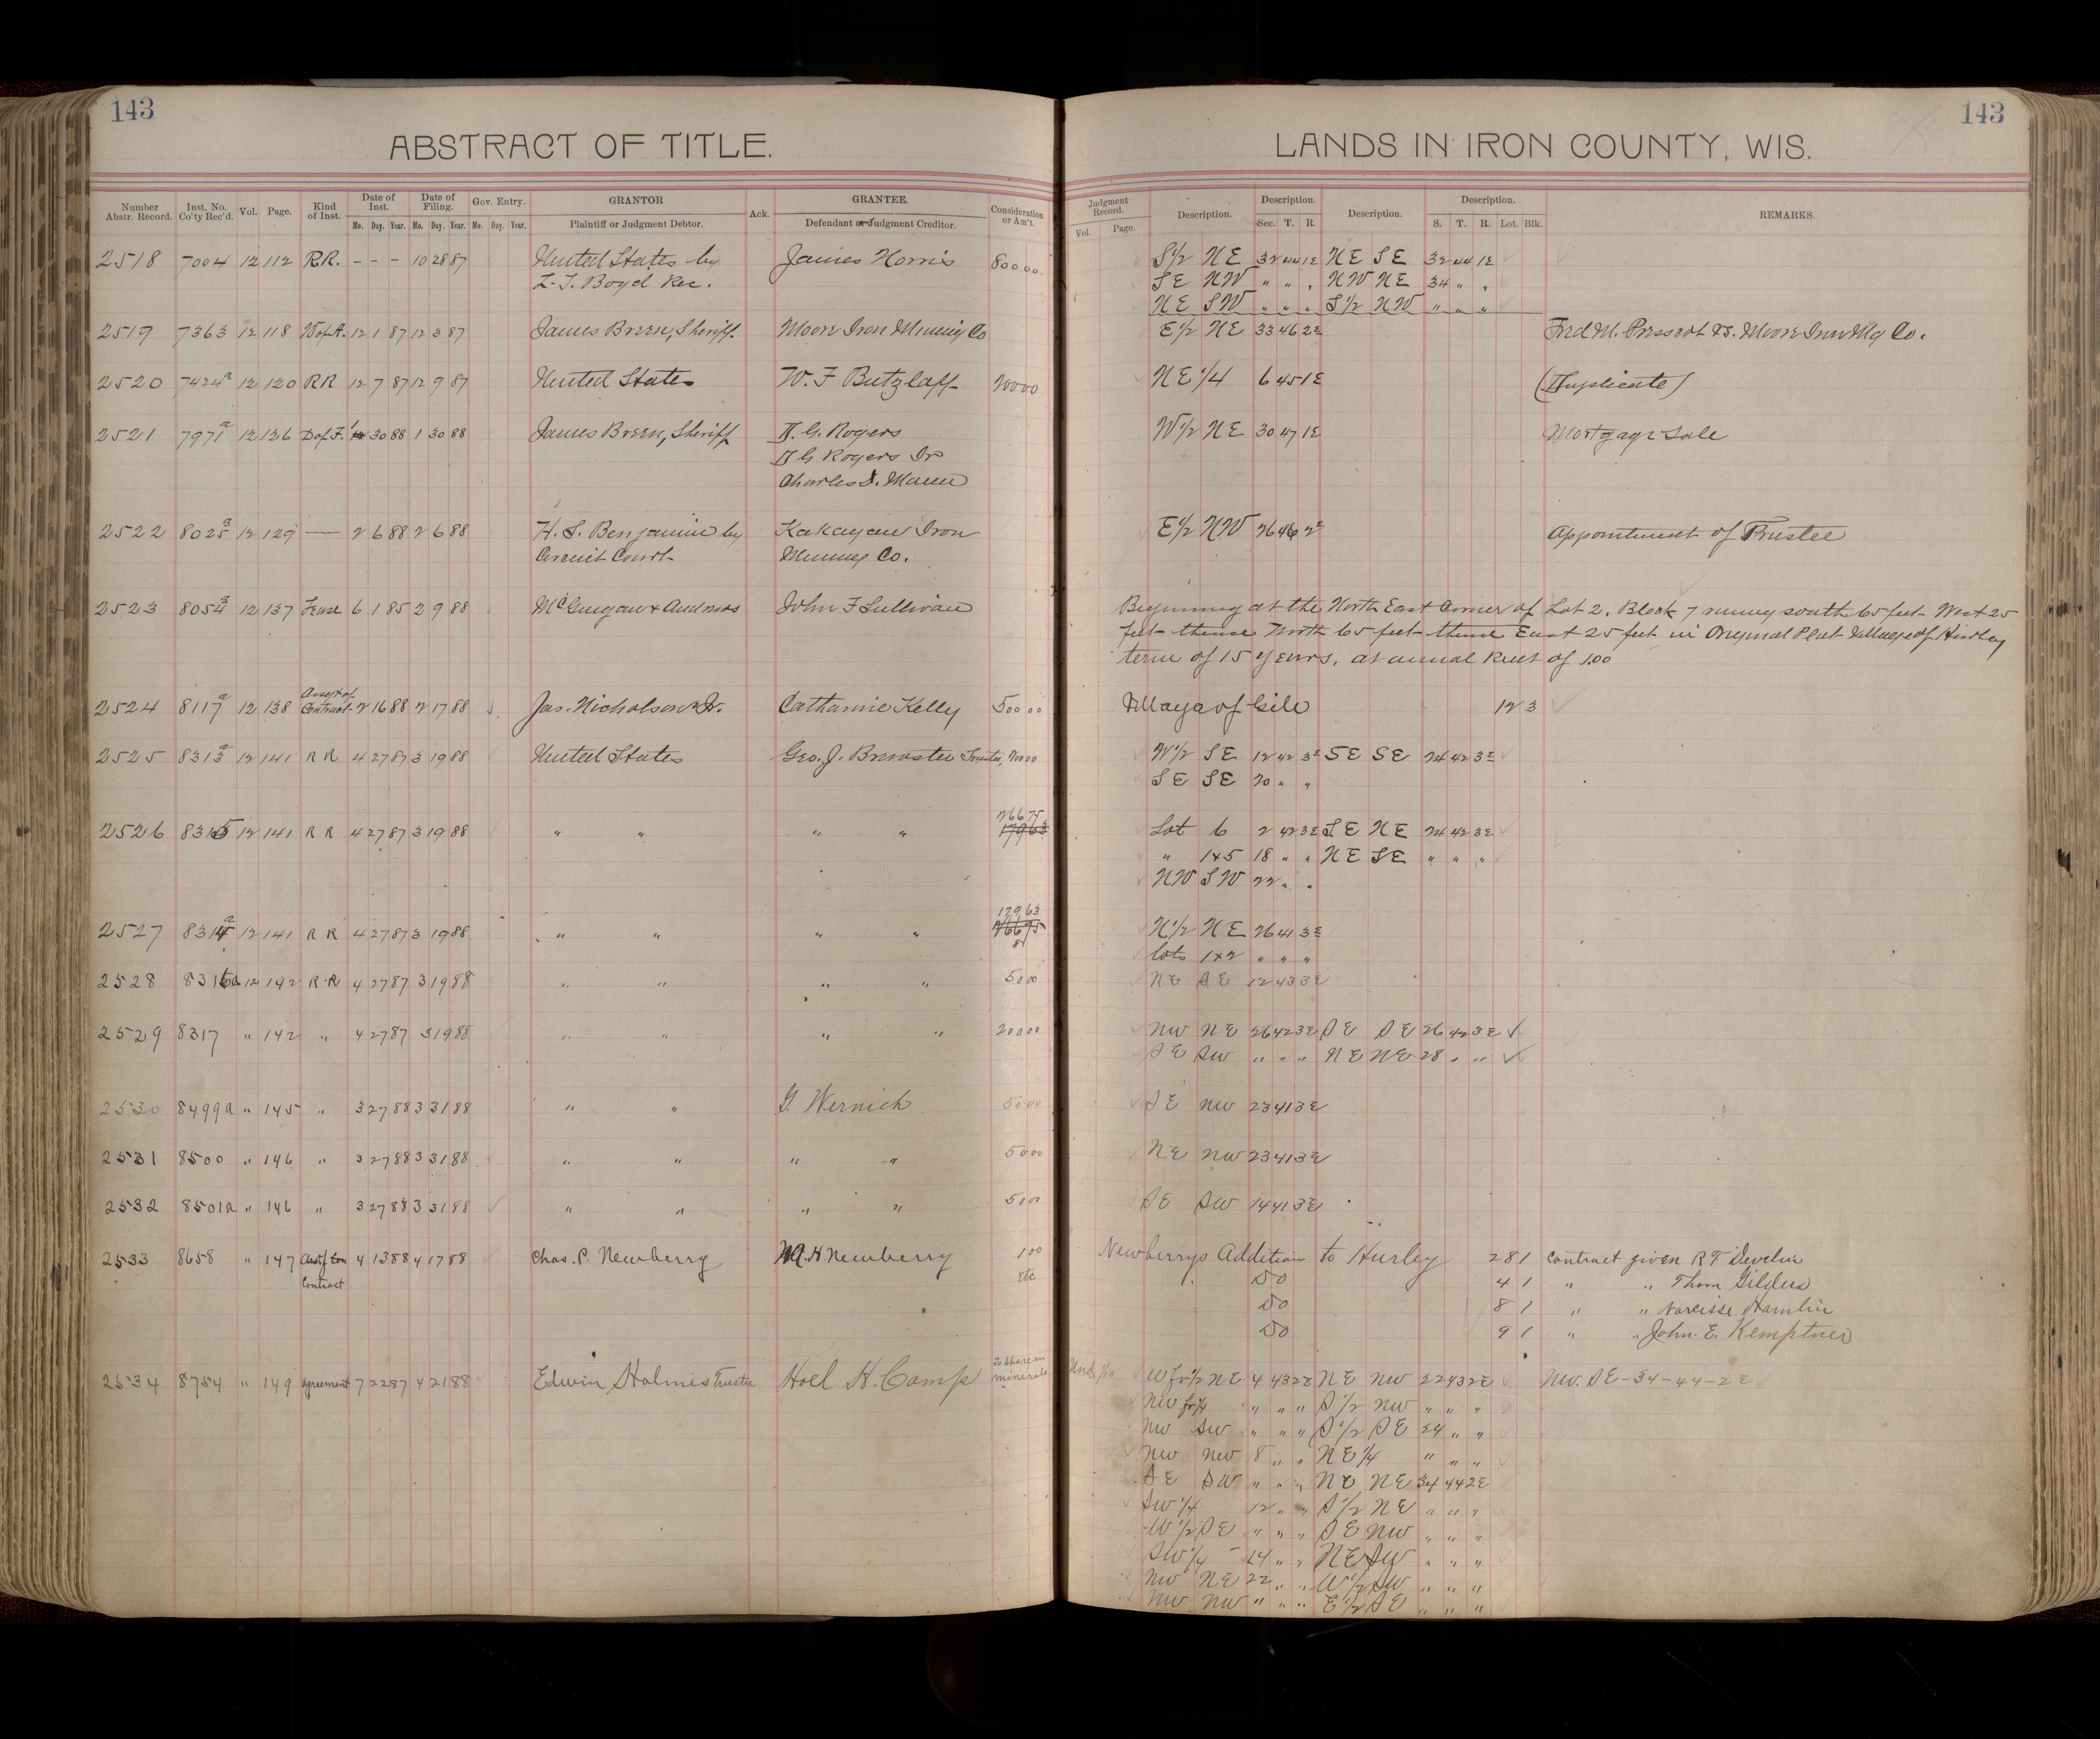 143
ABSTRACT OF TITLE.
Number Abstr. Record. Inst. No. Co'ty Rec'd. Vol. Page. Kind of Inst. Date of Inst. Date of Filing. Gov. Entry. GRANTOR Ack. GRANTEE. Consideration or Am't.
Mo. Day. Year. Mo. Day. Year. Mo. Day. Year. Plaintiff or Judgment Debtor. Defendant or Judgment Creditor.
2518 7004 12 112 R.R. - - - 10 28 87 United States by James Norris 800 00
L. T. Boyd Rec.
2519 7363 12 118 W of A. 12 1 87 12 3 87 James Breen, Sheriff. Moore Iron Mining Co
2520 7424a 12 120 RR 12 7 87 12 9 87 United States W. F Butzlaff 200 00
2521 7971a 12 126 D of F. 1 30 88 1 30 88 James Breen, Sheriff D. G. Rogers
D G Rogers Jr
Charles I. Mann
2522 8025a 12 129 — 2 6 88 2 6 88 H. S. Benjamin by Kakagan Iron
Circuit Court Mining Co.
2523 8054a 12 137 Lease 6 1 85 2 9 88 McGuigan & Andrews John F Sullivan
2524 8117a 12 138 Assgt of Contract 2 16 88 2 17 88 Jas. Nicholson Jr. Catharine Kelly 500 00
2525 8313a 12 141 RR 4 27 87 3 19 88 United States Geo. J. Brewster Trustee, 200 00
266 75
2526 8315 12 141 RR 4 27 87 3 19 88 " " " " 179 63
179 63
2527 8314a 12 141 RR 4 27 87 3 19 88 " " " " 266 75
2528 8316a 12 142 R.R 4 27 87 3 19 88 " " " " 50 00
2529 8317 " 142 " 4 27 87 3 19 88 " " " " 200 00
2530 8499a " 145 " 3 27 88 3 31 88 " " G. Wernich 50 00
2531 8500 " 146 " 3 27 88 3 31 88 " " " " 50 00
2532 8501a " 146 " 3 27 88 3 31 88 " " " " 50 00
2533 8658 " 147 Contract 4 13 88 4 17 88 Chas. P. Newberry M. H Newberry 1 00
etc
2534 8754 " 149 agreement 7 22 87 4 21 88 Edwin Holmes Trustee Hoel H. Camp To share in minerals
143
LANDS IN IRON COUNTY, WIS.
Judgment Record. Description. Description. Description. Description. REMARKS.
Vol. Page. Sec. T. R. S. T. R. Lot. Blk.
S1/2 NE 32 44 1E NE SE 32 44 1E
SE NW " " " NW NE 34 " "
NE SW " " " S1/2 NW " " "
E1/2 NE 33 46 2E Fred M. Prescott vs. Moore Iron Mg Co.
NE 1/4 6 45 1E (Duplicate)
W1/2 NE 30 47 1E Mortgage Sale
E1/2 NW 26 46 2E Appointment of Trustee
Beginning at the North East Corner of Lot 2. Block 7 runing south 65 feet West 25
feet thense North 65 feet thense East 25 feet in Original Plat Village of Hurley
term of 15 years. at annual Rent of 1.00
Village of Gile 12 3
W1/2 SE 12 42 3E SE SE 24 42 3E
SE SE 20 " "
Lot 6 2 42 3E SE NE 24 42 3E
" 1&5 18 " " NE SE " " "
NW SW 22 " "
N1/2 NE 26 41 3E
lots 1&2 " " "
NE SE 12 43 3E
NW NE 26 42 3E SE SE 26 42 3E
SE SW " " " NE NE 28 " "
SE NW 23 41 3E
NE NW 23 41 3E
SE SW 14 41 3E
Newberrys Addition to Hurley 28 1 Contract given R F Develin
Do 4 1 " " Thom Gilders
Do 8 1 " " Narcisse Hamlin
Do 9 1 " " John. E. Kemptner
Und 1/10 W fr 1/2 NE 4 43 2E NE NW 22 43 2E NW. SE-34-44-2E
NW fr 1/4 " " " S1/2 NW " " "
NW SW " " " S1/2 SE 24 " "
NW NW 8 " " NE 1/4 " " "
SE SW " " " NE NE 34 44 2E
SW 1/4 12 " " S1/2 NE " " "
W1/2 SE " " " SE NW " " "
SW 1/4 14 " " NE SW " " "
NW NE 22 " " W1/2 SW " " "
NW NW " " " E1/2 SE " " "